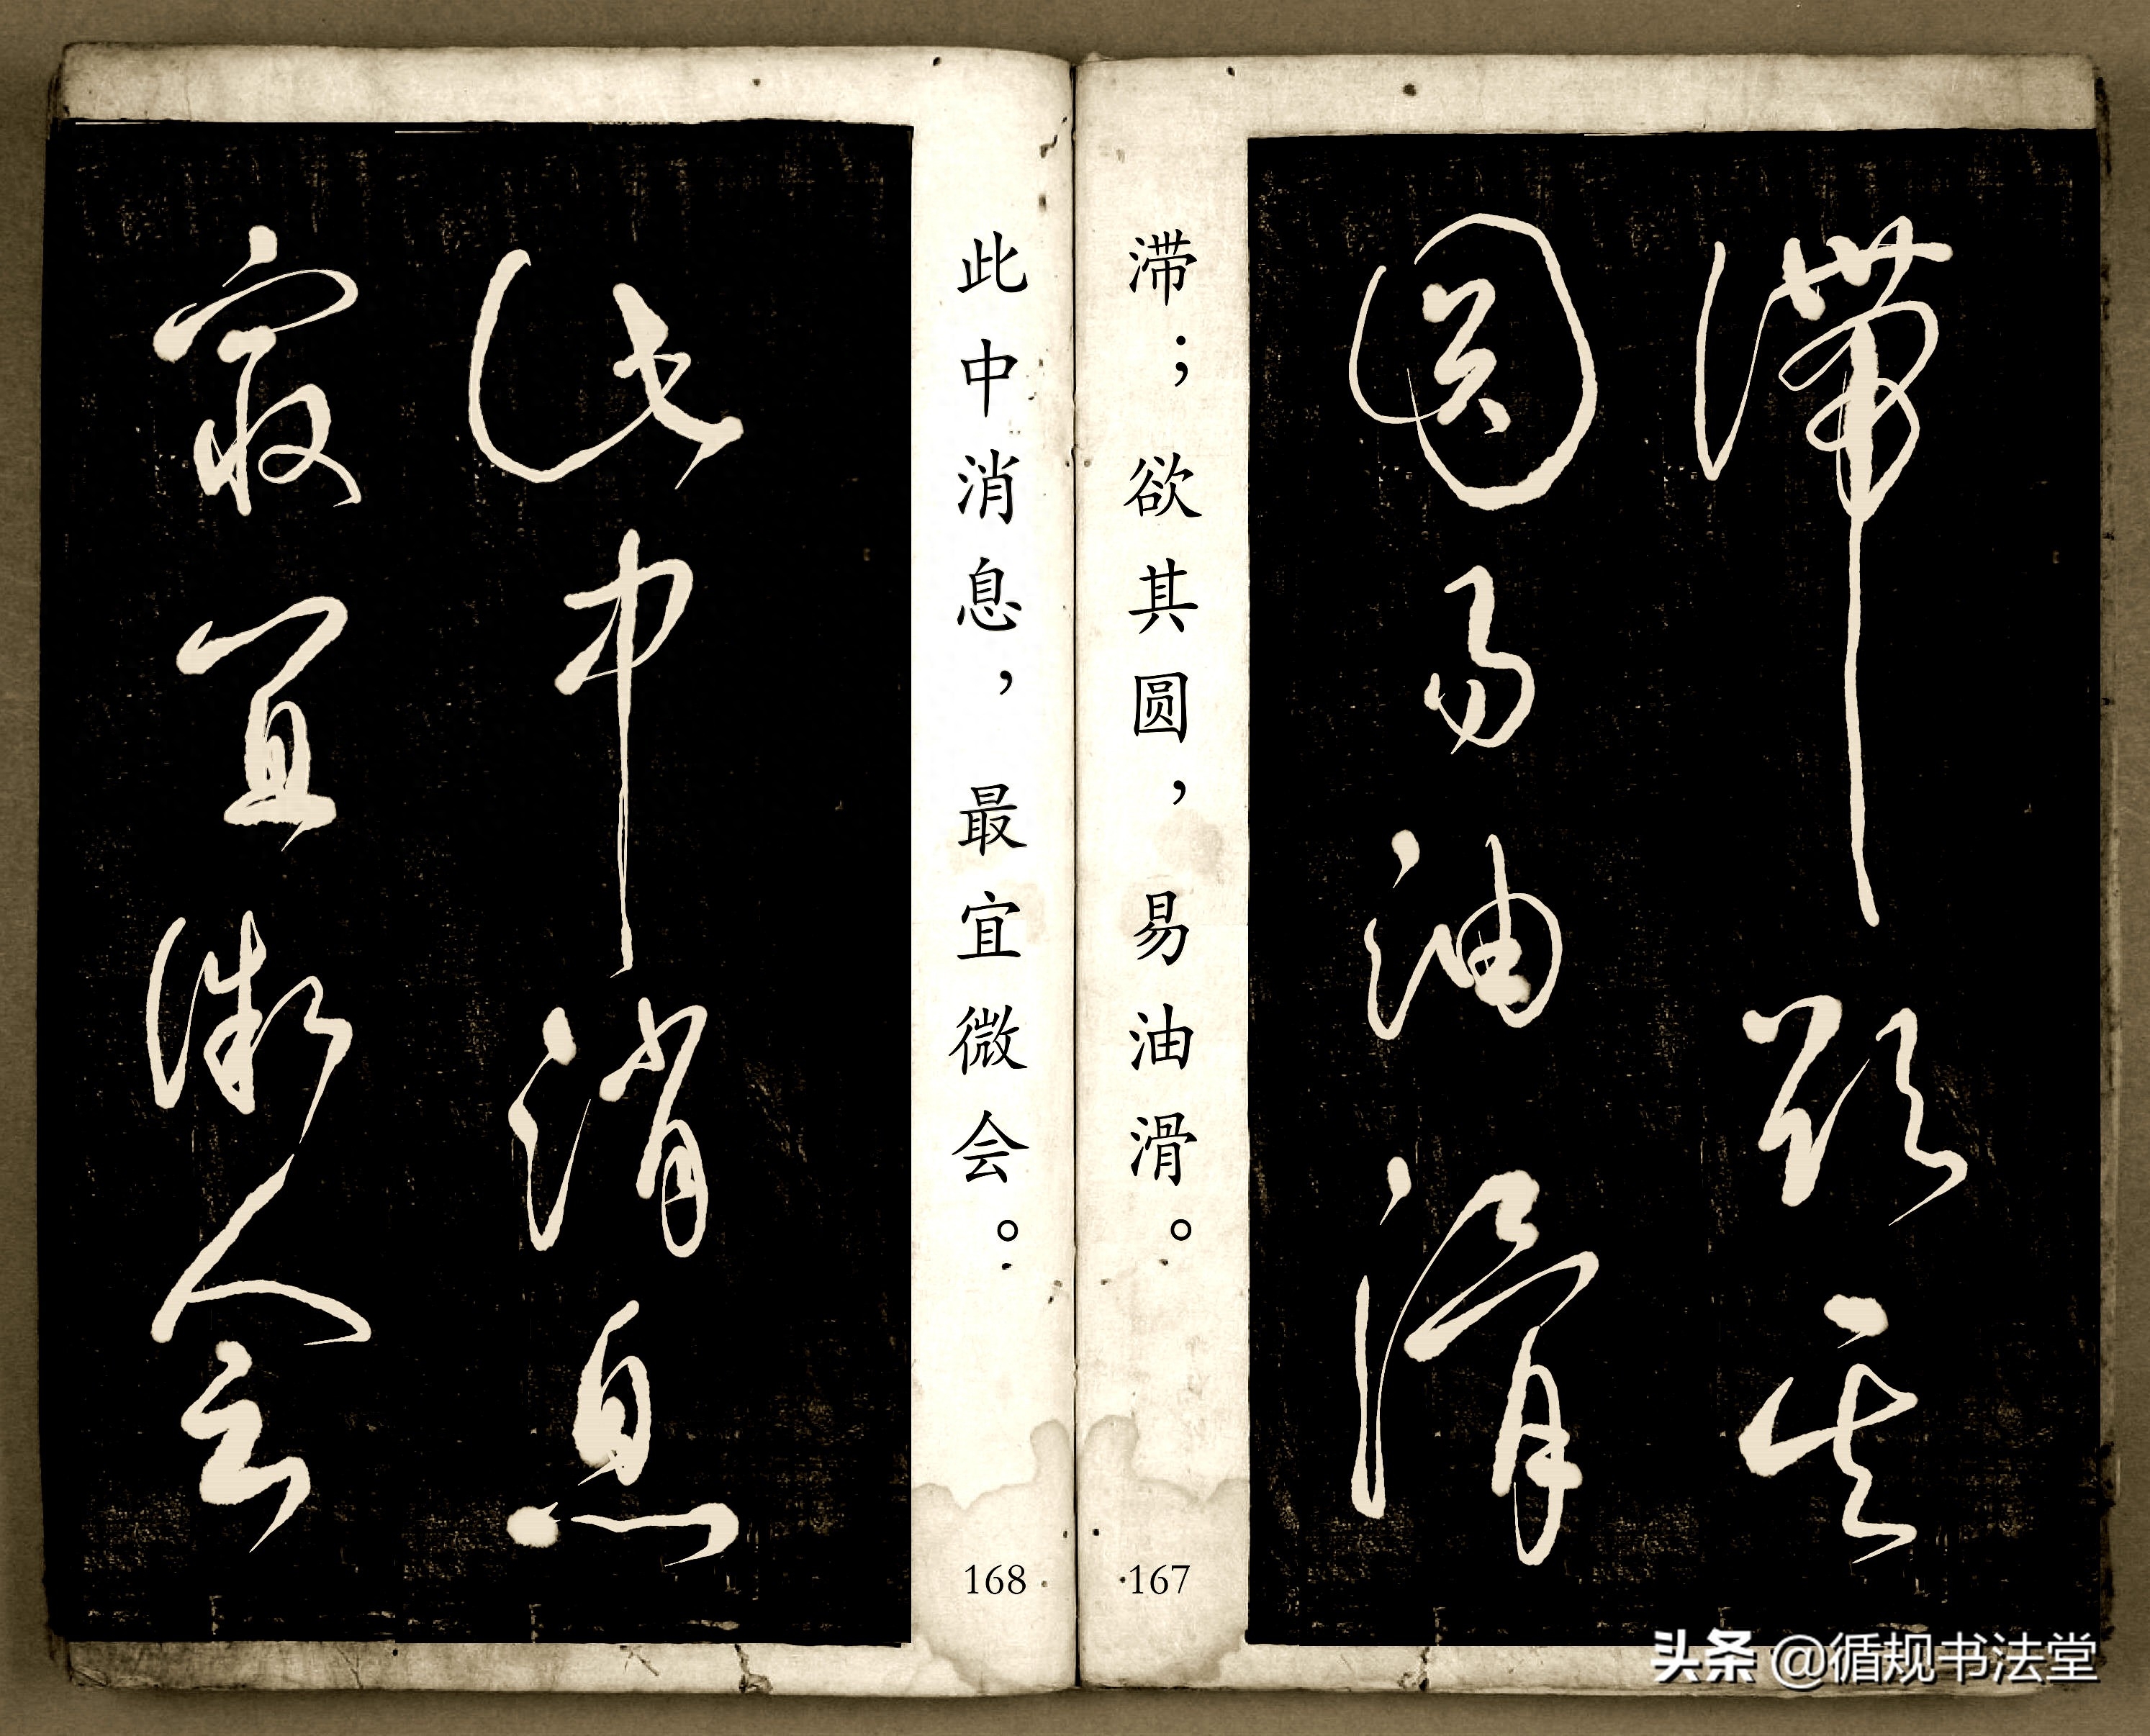 滯欲其
圓易油滑
滞；欲其圆，易油滑。
167
此中消息，最宜微会。
168
此中消息
最宜微会
头条 @循规书法堂